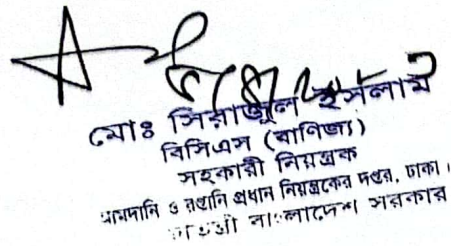 মোঃ সিরাজুল ইসলাম
বিসিএস (বাণিজ্য)
সহকারী নিয়ন্ত্রক
আমদানি ও রপ্তানি প্রধান নিয়ন্ত্রকের দপ্তর, ঢাকা।
বাংলাদেশ সরকার